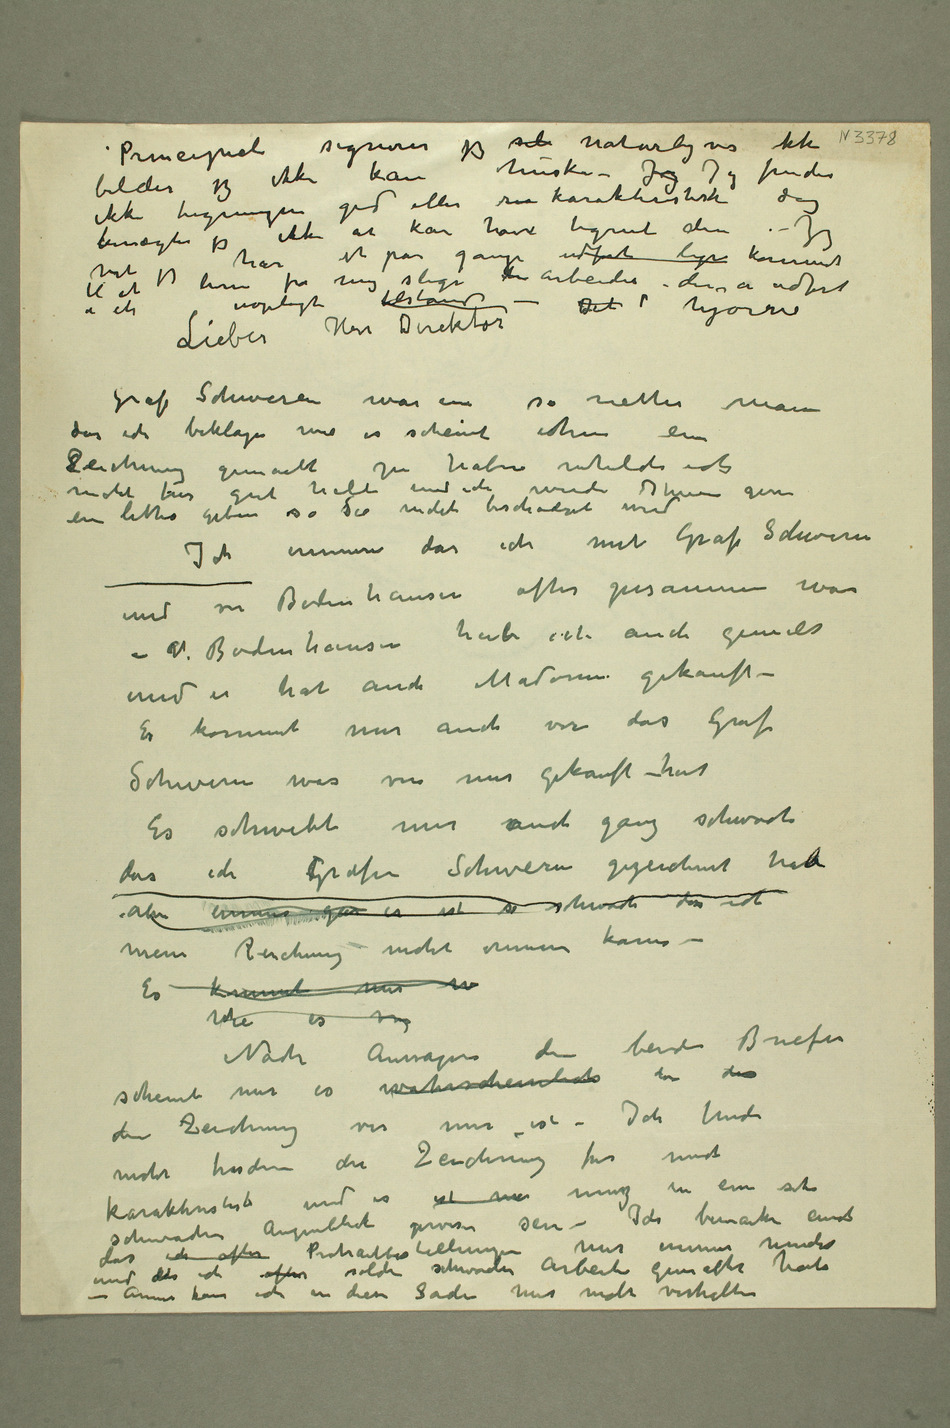 N 3378
Principielt signerer jeg selv naturligvis ikke
billeder jeg ikke kan huske – Jeg Jeg finder
ikke tegningen god eller karakteristisk dog
benægter jeg ikke at kan have tegnet den. – Jeg
vet jeg har et par gange udført lign kommet
til et hjem fra mig slige arbeider – der, a udført
i et uopligt tilstand – Det hjørne
Lieber Herr Direktor
Graf Schwerin war ein so netter Mann
das ich beklage wie es scheint ihm eine
Zeichnung gemacht zu haben welche ich
nicht für gut halte und ich würde Ihnen gern
ein litho geben so Sie nicht beschädigt wird
Ich erinnere das ich mit Graf Schwerin
und von Bodenhausen öfter zusammen war
– V. Bodenhausen habe ich auch gemalt
und er hat auch Madonna gekauft –
Es kommt mir auch vor das Graf
Schwerin was von mir gekauft hat
Es schwebt mir auch ganz schwach
das ich Gräfin Schwerin gezeichnet habe
aber immer gar es ist so schwach das ich
meine Zeichnung nicht erinnern kann –
Es kommt mir w
Wie es
Nach den beiden Briefen
scheint mir es wahrscheinlich das
die Zeichnung von mir ist – Ich finde
nicht die Zeichnung für mich
karakteristisch und es ist mir muss in ein sehr
schwacher Augenblick gewesen sein – Ich bemerke auch
das ich öfter Portraitbestellungen mir immer
und das ich öfter solche schwache Arbeite gemacht habe
– kann ich in diese Sache mir nicht verhalten